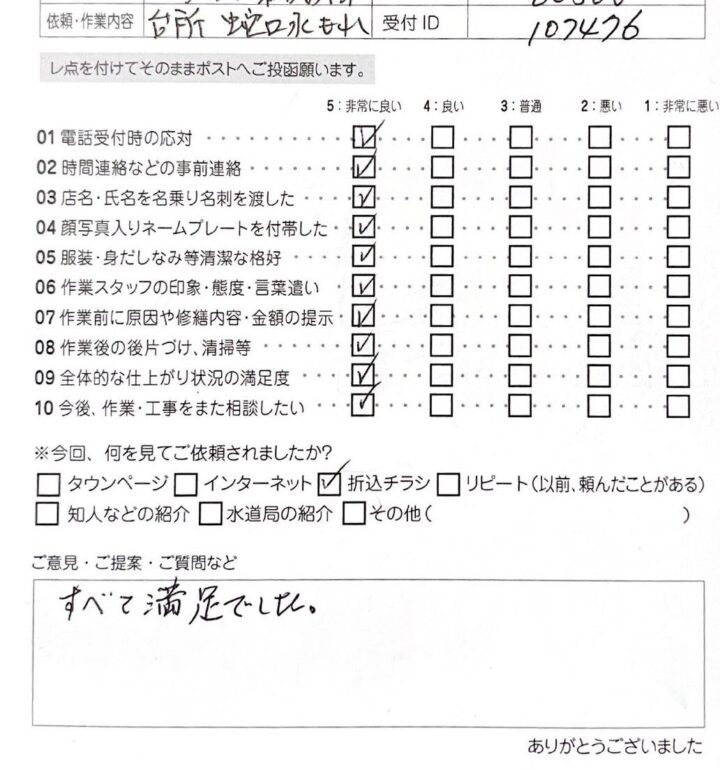 依頼・作業内容 台所 蛇口水もれ 受付 ID 107476
レ点を付けてそのままポストへご投函願います。
5：非常に良い 4：良い 3：普通 2：悪い 1：非常に悪い
01 電話受付時の応対
02 時間連絡などの事前連絡
03 店名・氏名を名乗り名刺を渡した
04 顔写真入りネームプレートを付帯した
05 服装・身だしなみ等清潔な格好
06 作業スタッフの印象・態度・言葉遣い
07 作業前に原因や修繕内容・金額の提示
08 作業後の後片づけ、清掃等
09 全体的な仕上がり状況の満足度
10 今後、作業・工事をまた相談したい
※今回、何を見てご依頼されましたか?
タウンページ インターネット 折込チラシ リピート(以前、頼んだことがある)
知人などの紹介 水道局の紹介 その他( )
ご意見・ご提案・ご質問など
すべて満足でした。
ありがとうございました